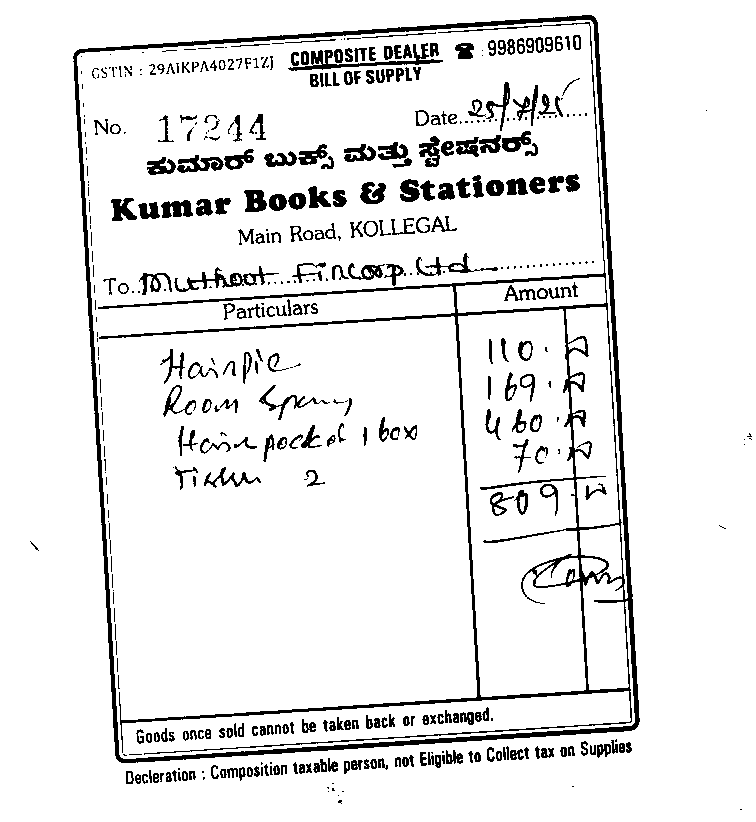 GSTIN : 29AIKPA4027F1ZJ COMPOSITE DEALER ☎ : 9986909610
BILL OF SUPPLY
No. 17244 Date 25/7/25
ಕುಮಾರ್ ಬುಕ್ಸ್ ಮತ್ತು ಸ್ಟೇಷನರ್ಸ್
Kumar Books & Stationers
Main Road, KOLLEGAL
To Muthoot Fincorp Ltd
Particulars Amount
110.
Room 169.
1 box 460.
2 70.
809.
Goods once sold cannot be taken back or exchanged.
Decleration : Composition taxable person, not Eligible to Collect tax on Supplies